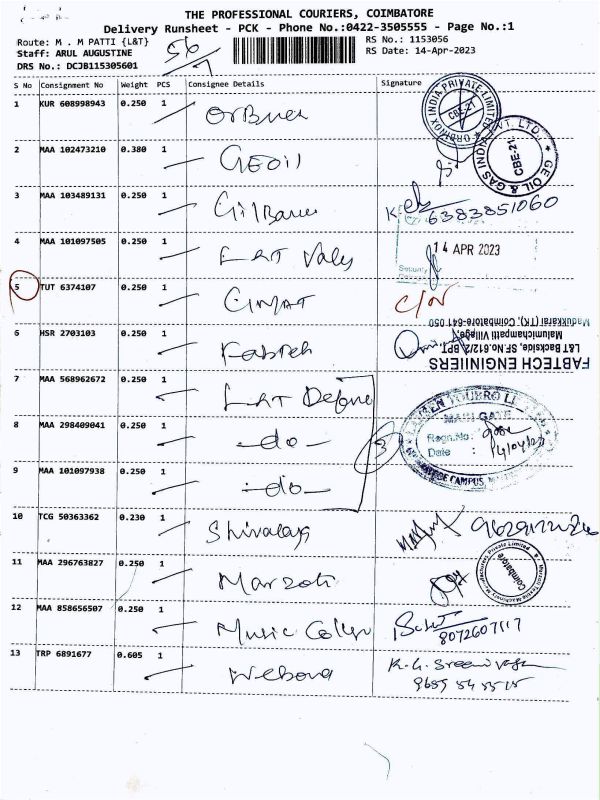 THE PROFESSIONAL COURIERS, COIMBATORE
Delivery Runsheet - PCK - Phone No.:0422-3505555 - Page No.:1
Route: M . M PATTI {L&T}
RS No.: 1153056
Staff: ARUL AUGUSTINE
RS Date: 14-Apr-2023
DRS No.: DCJB115305601
S No Consignment No Weight PCS Consignee Details Signature
1 KUR 608998943 0.250 1
ORBINOX INDIA PRIVATE LIMITED
CBE-21
2 MAA 102473210 0.380 1 GEOil
GE OIL & GAS INDIA PVT. LTD.
CBE-21
3 MAA 103489131 0.250 1 Gilbarco
6383851060
4 MAA 101097505 0.250 1 L&T Valves
14 APR 2023
Security
5 TUT 6374107 0.250 1
6 HSR 2703103 0.250 1 Fabtech
FABTECH ENGINIIERS
L&T Backside, SF.No.612/2, BPT
Malumichampatti Village,
Madukkarai (TK), Coimbatore-641 050
7 MAA 568962672 0.250 1 L&T Defence
LARSEN TOUBRO
MAIN GATE
8 MAA 298409041 0.250 1 -do-
Regn.No:
Date :
CAMPUS
3
9 MAA 101097938 0.250 1 -do-
10 TCG 50363362 0.230 1 Shivalaya
11 MAA 296763827 0.250 1
Coimbatore
12 MAA 858656507 0.250 1
8072607117
13 TRP 6891677 0.605 1
K.G. Sreenivasan